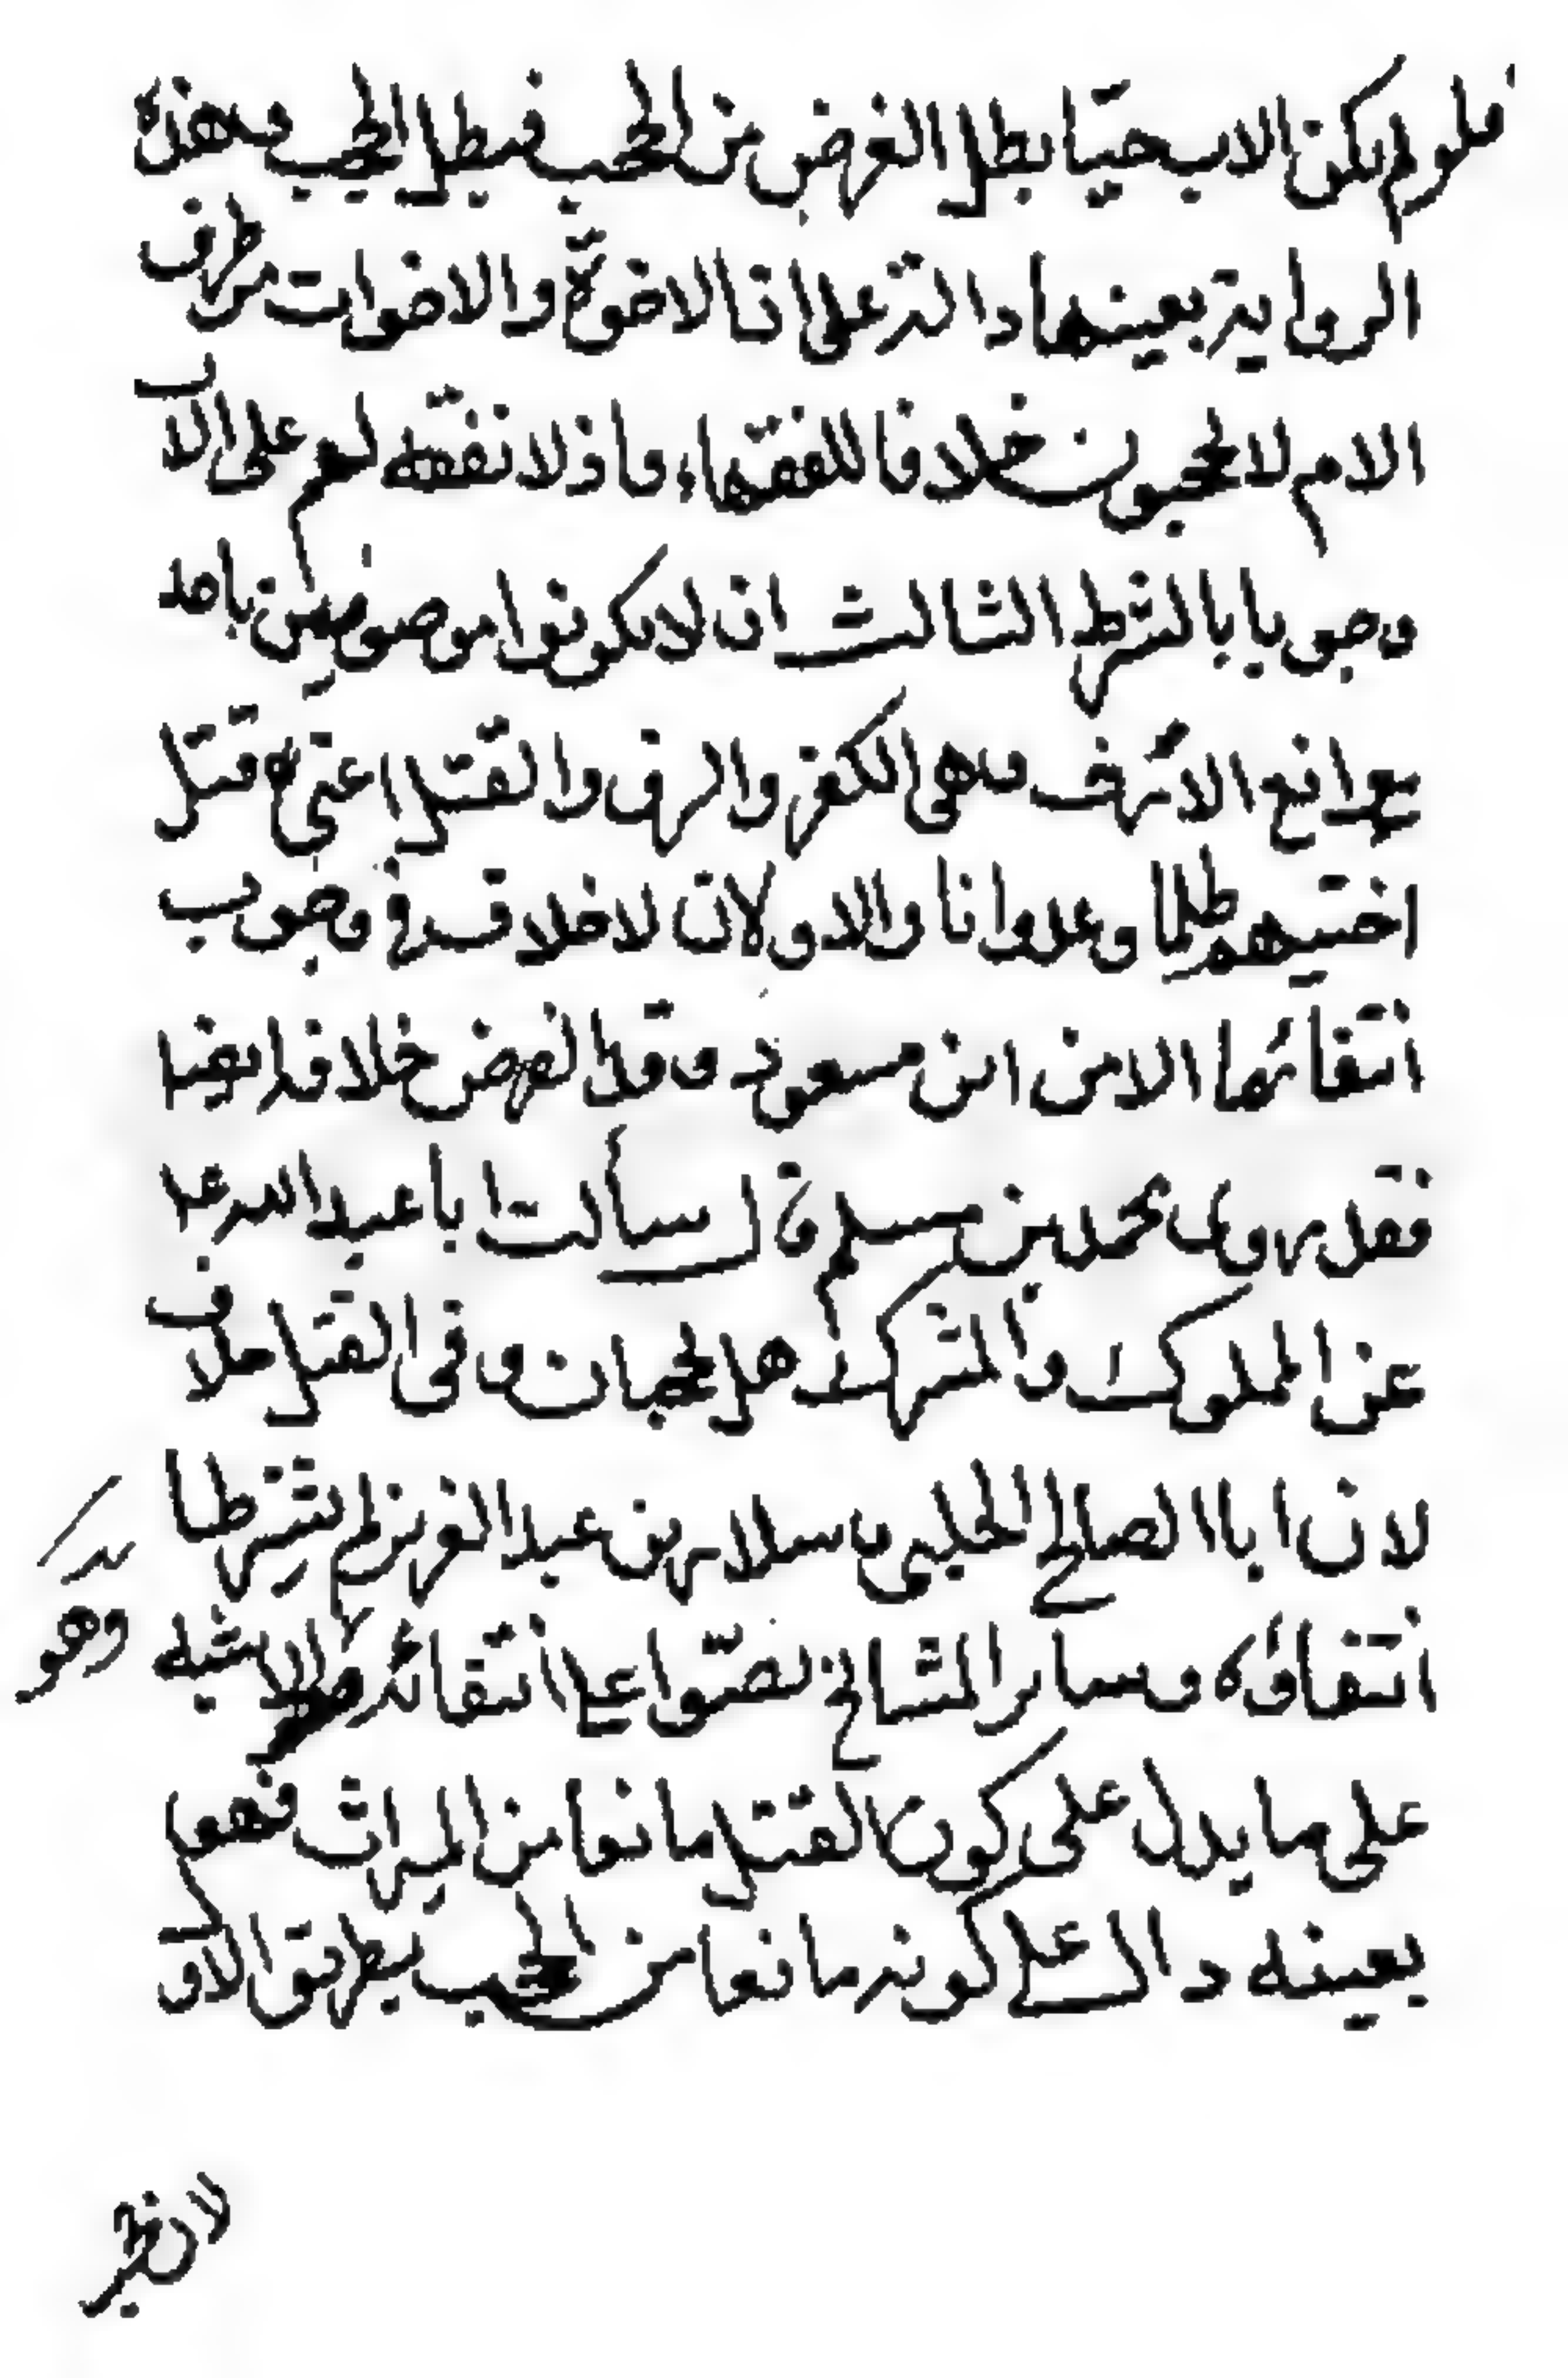 فلو لم يكن الاب حيّا بطل الغرض من الحجب فبطل الحجب وهذه
الرواية بعينها دالة على ان الاخوة والاخوات من طرف
الام لا يحجبون خلافا للفقهاء واذ لا نفقة لهم على الاب
وجوبا بالشرط الثالث ان لا يكونوا موصوفين باحد
بموانع الارث وهى الكفر والرق والقتل اعنى قتل
اخيهم ظلما وعدوانا والاولان لا خلاف فى وجوب
انتفائهما الا من ابن مسعود وقد خلافه ايضا
فقد روى محمد بن مسلم قال سألت با عبد الله ع
عن المملوك والمشرك هل يحجبان وفى القتل خلاف
لان ابا الصالح الحلبى وسلار بن عبد العزيز لم يشترطا
انتفاؤه وساير المشايخ نصّوا على انتفائه والاشبه
وهو
على ما يدل على كون القتل مانعا من الميراث فهو
بعينه دال على كونه مانعا من الحجب بطريق الاو